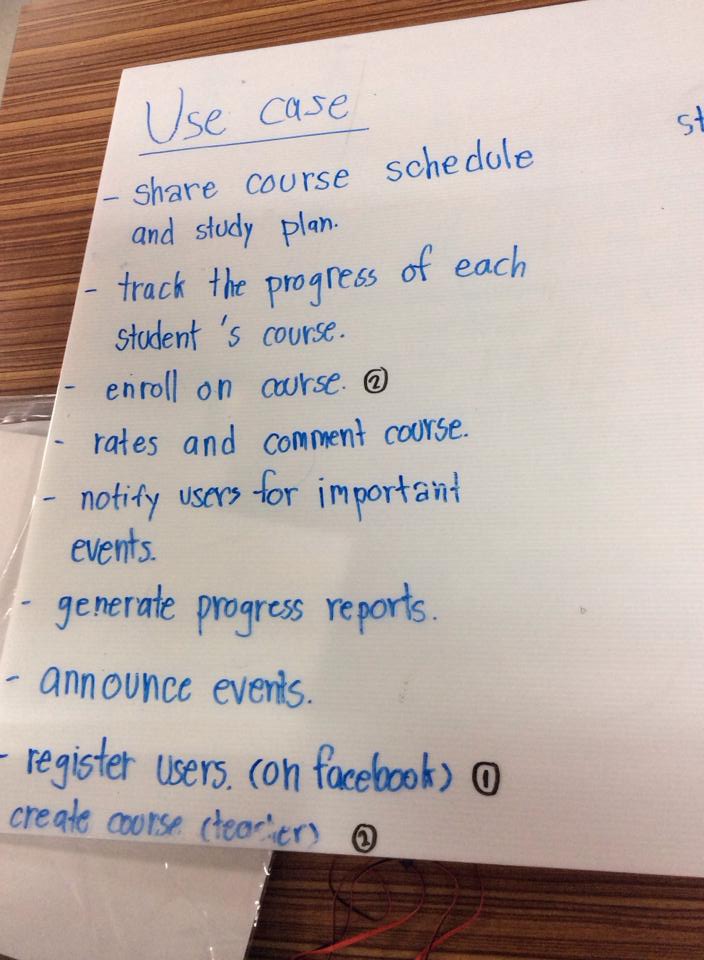 Use case
- share course schedule
and study plan.
- track the progress of each
student 's course.
- enroll on course. ②
- rates and comment course.
- notify users for important
events.
- generate progress reports.
- announce events.
- register users. (on facebook) ①
create course (teacher) ②
st